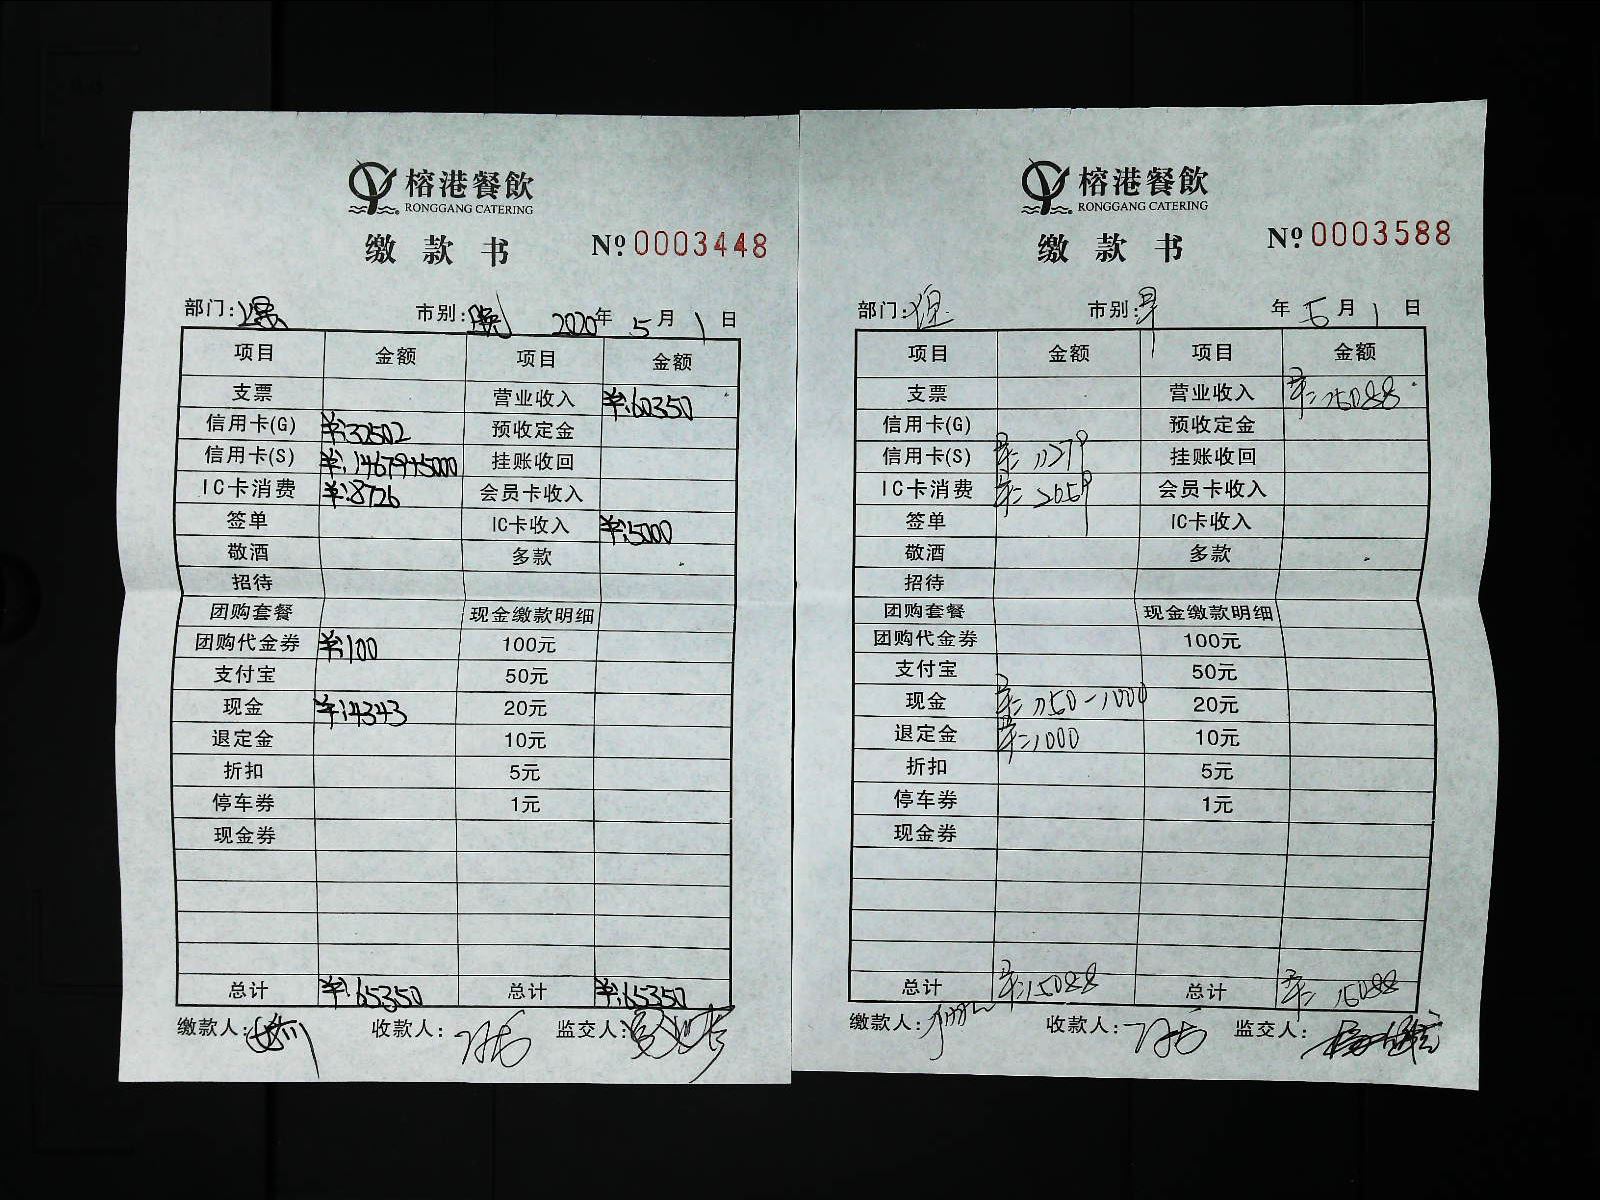 榕港餐飲
RONGGANG CATERING
缴款书 Nº 0003448
部门: 市别: 2020年 5月 1日
项目 金额 项目 金额
支票 营业收入 ¥:60350
信用卡(G) ¥:32502 预收定金
信用卡(S) ¥:14679+5000 挂账收回
IC卡消费 ¥:8726 会员卡收入
签单 IC卡收入 ¥:5000
敬酒 多款
招待
团购套餐 现金缴款明细
团购代金券 ¥:100 100元
支付宝 50元
现金 ¥:4343 20元
退定金 10元
折扣 5元
停车券 1元
现金券
总计 ¥:65350 总计 ¥:65350
缴款人: 收款人: 监交人:
榕港餐飲
RONGGANG CATERING
缴款书 Nº 0003588
部门: 市别:早 年 5月 1日
项目 金额 项目 金额
支票 营业收入 ¥:15088
信用卡(G) 预收定金
信用卡(S) ¥:11279 挂账收回
IC卡消费 ¥:2659 会员卡收入
签单 IC卡收入
敬酒 多款
招待
团购套餐 现金缴款明细
团购代金券 100元
支付宝 50元
现金 ¥:1150-1000 20元
退定金 ¥:1000 10元
折扣 5元
停车券 1元
现金券
总计 ¥:15088 总计 ¥:15088
缴款人: 收款人: 监交人: